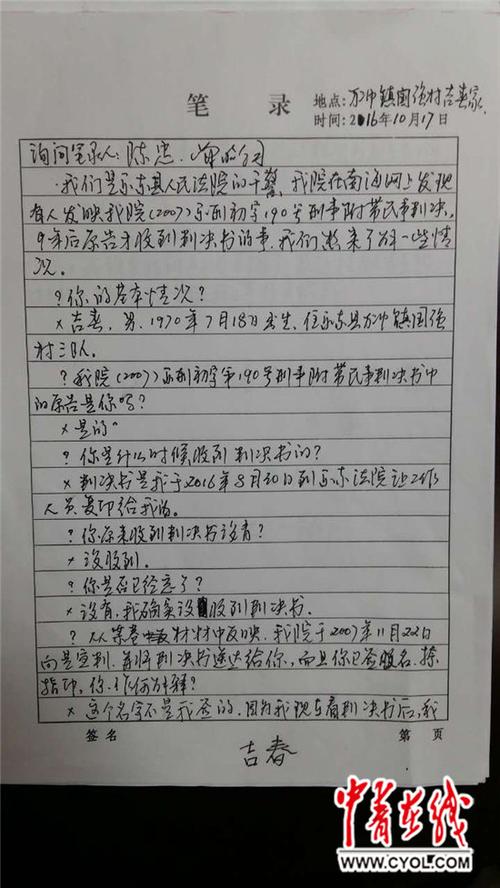 笔 录
地点:万冲镇国强村吉春家
时间:2016年10月17日
询问笔录人:陈忠、
我们是乐东县人民法院的干警,我院在南海网上发现
有人反映我院(2007)乐刑初字190号刑事附带民事判决,
9年后原告才收到判决书的事,我们想来了解一些情
况。
?你的基本情况?
×吉春,男,1970年7月18日出生,住乐东县万冲镇国强
村三队。
?我院(2007)乐刑初字第190号刑事附带民事判决书中
的原告是你吗?
×是的。
?你是什么时候收到判决书的?
×判决书是我于2016年8月30日到乐东法院让工作
人员复印给我的。
?你原来收到判决书没有?
×没收到。
?你是否已经忘了?
×没有,我确实没收到判决书。
?从案卷材料中反映,我院于2007年11月22日
向是宣判,并将判决书送达给你,而且你已签收名、捺
指印,你作何解释?
×这个名字不是我签的,因为我现在看判决书后,我
签名 第 页
吉春
中青在线
WWW.CYOL.COM